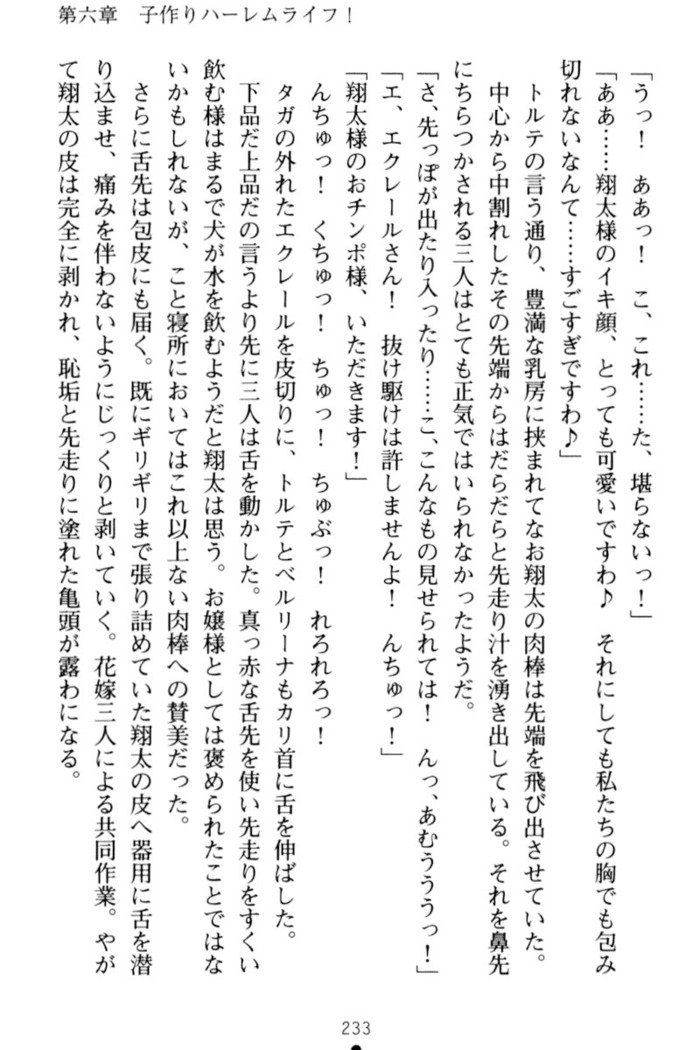 第六章　子作りハーレムライフ！
「うっ！　ああっ！　こ、これ……た、堪らないっ！」
「ああ……翔太様のイキ顔、とっても可愛いですわ♪　それにしても私たちの胸でも包み
切れないなんて……すごすぎですわ♪」
　トルテの言う通り、豊満な乳房に挟まれてなお翔太の肉棒は先端を飛び出させていた。
　中心から中割れしたその先端からはだらだらと先走り汁を湧き出している。それを鼻先
にちらつかされる三人はとても正気ではいられなかったようだ。
「さ、先っぽが出たり入ったり……こ、こんなもの見せられては！　んっ、あむううっ！」
「エ、エクレールさん！　抜け駆けは許しませんよ！　んちゅっ！」
「翔太様のおチンポ様、いただきます！」
　んちゅっ！　くちゅっ！　ちゅっ！　ちゅぶっ！　れろれろっ！
　タガの外れたエクレールを皮切りに、トルテとベルリーナもカリ首に舌を伸ばした。
　下品だ上品だの言うより先に三人は舌を動かした。真っ赤な舌先を使い先走りをすくい
飲む様はまるで犬が水を飲むようだと翔太は思う。お嬢様としては褒められたことではな
いかもしれないが、こと寝所においてはこれ以上ない肉棒への賛美だった。
　さらに舌先は包皮にも届く。既にギリギリまで張り詰めていた翔太の皮へ器用に舌を潜
り込ませ、痛みを伴わないようにじっくりと剥いていく。花嫁三人による共同作業。やが
て翔太の皮は完全に剥かれ、恥垢と先走りに塗れた亀頭が露わになる。
233